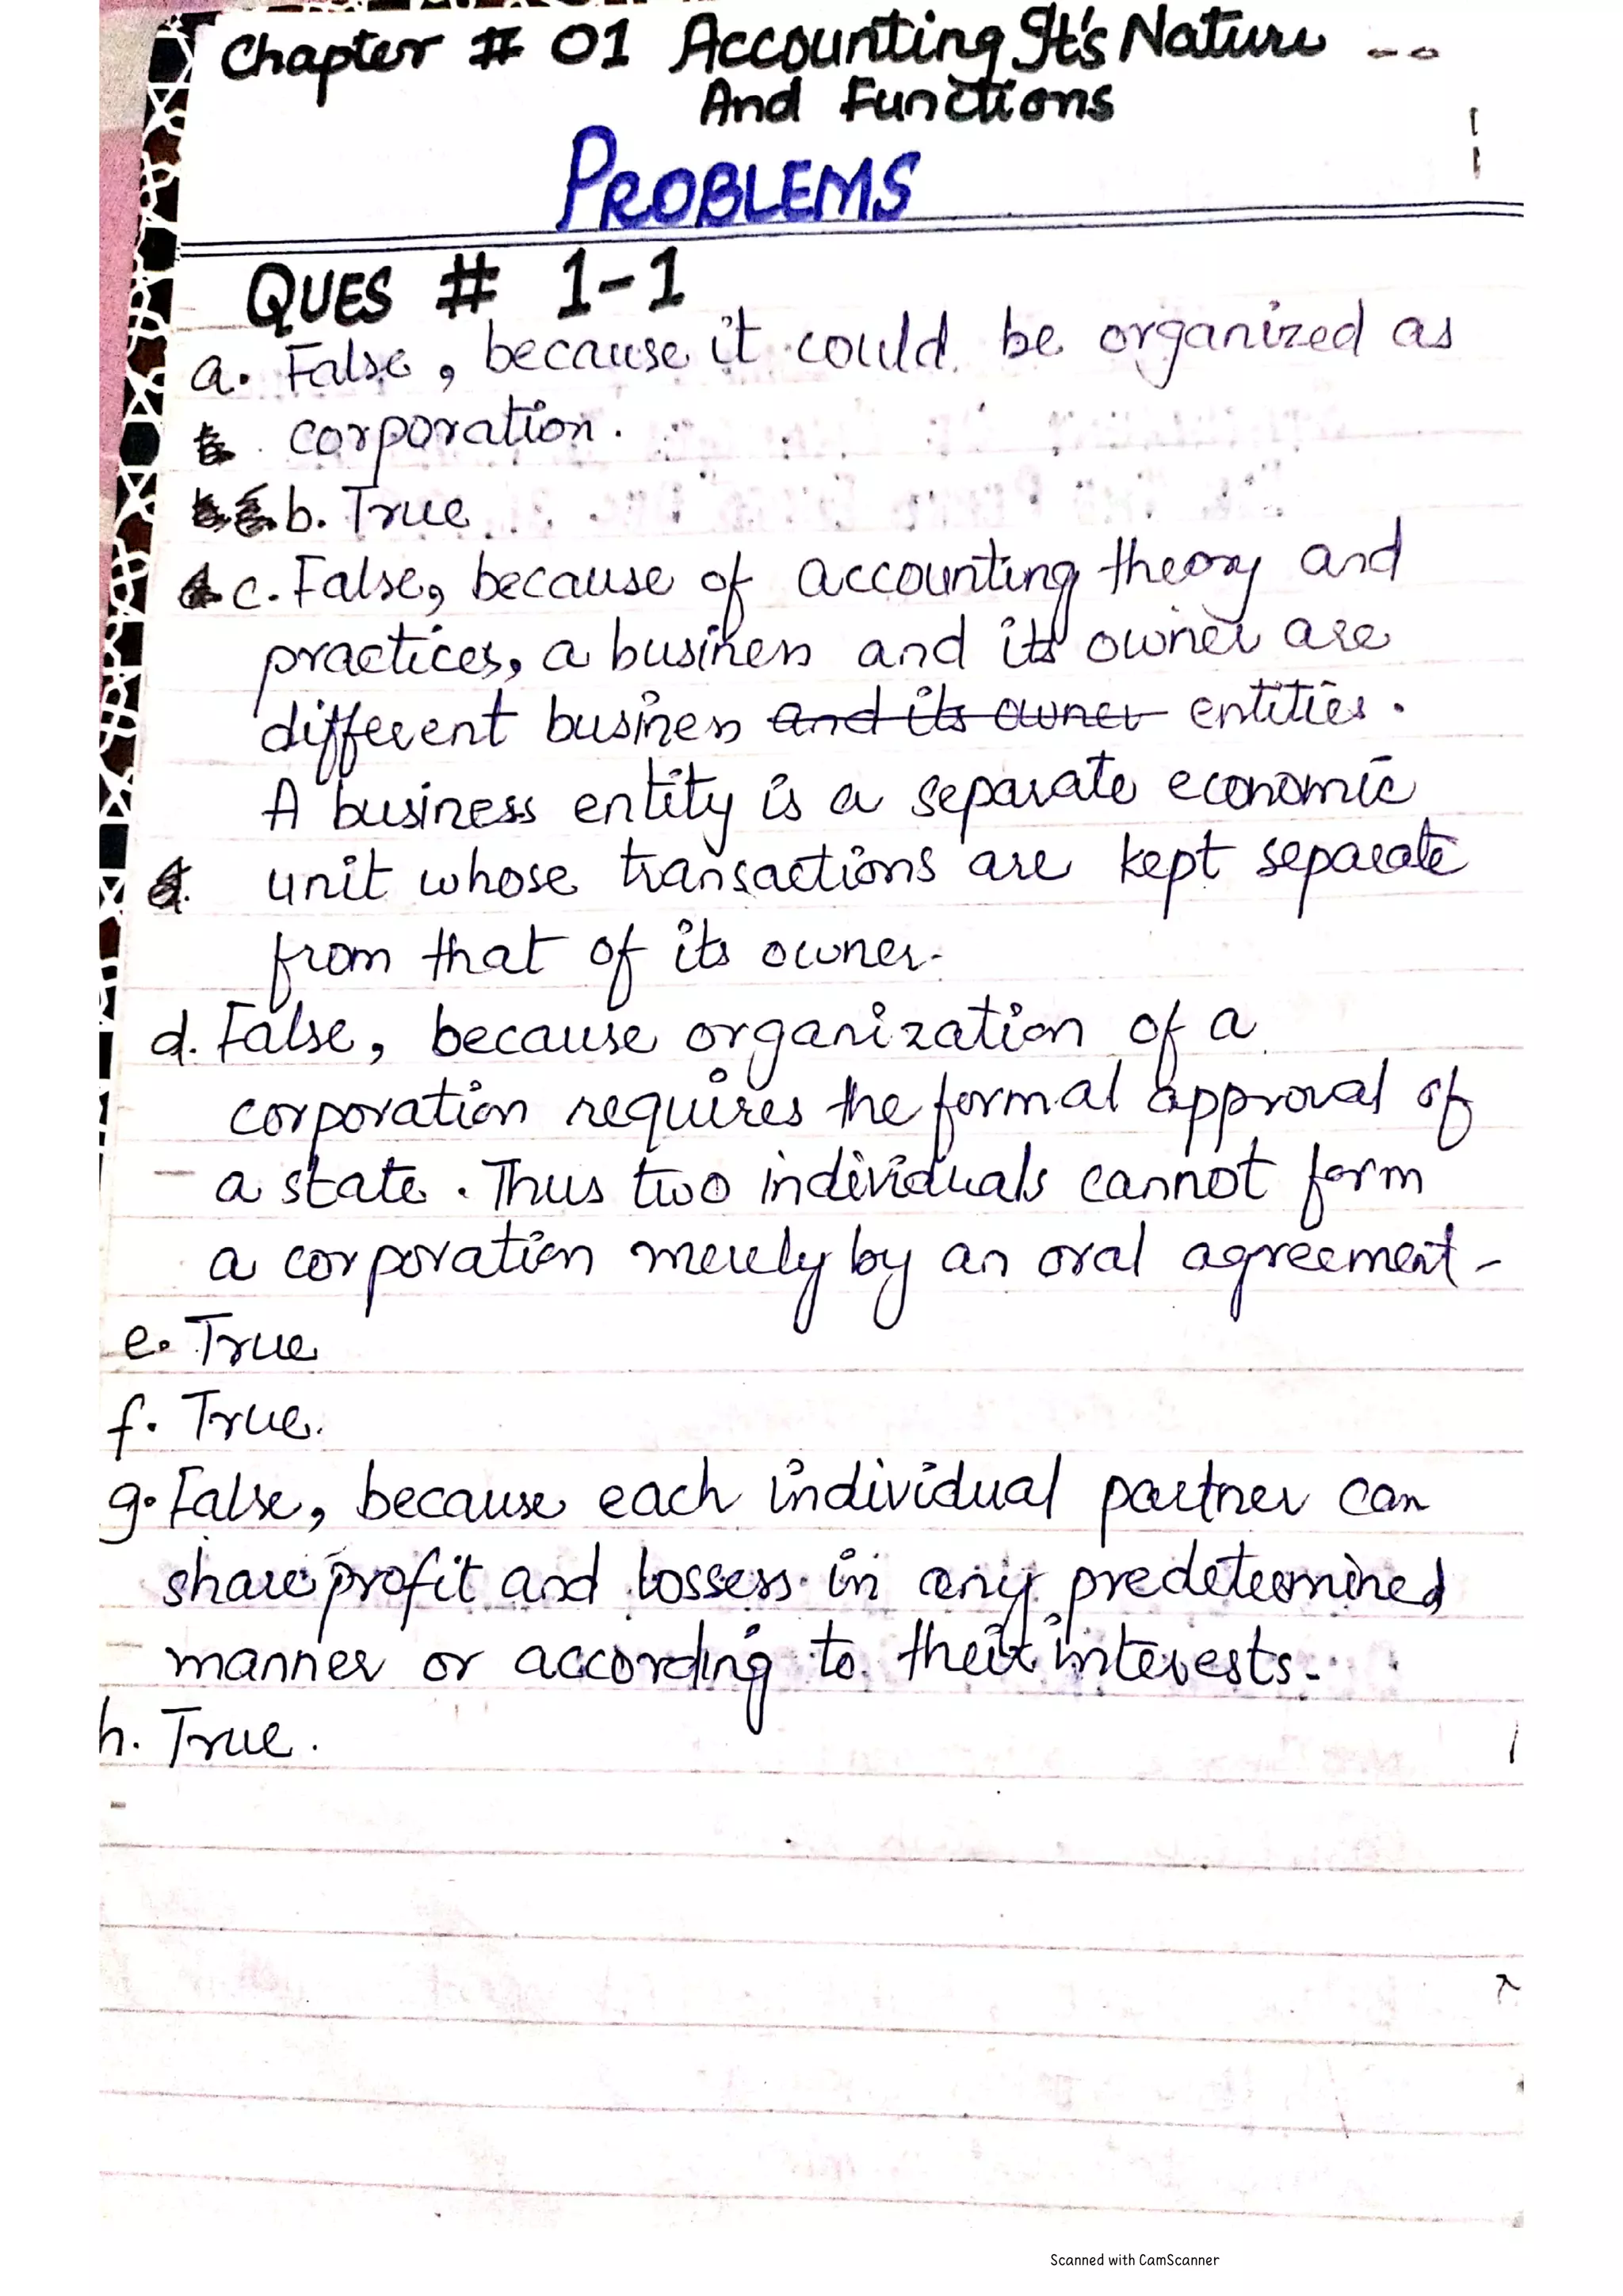 Chapter # 01 Accounting It's Nature
And Functions
PROBLEMS
QUES # 1-1
a. False, because it could be organized as
corporation.
b. True
c. False, because of accounting theory and
practices, a business and its owner are
different business and its owner entities.
A business entity is a separate economic
unit whose transactions are kept separate
from that of its owner.
d. False, because organization of a
corporation requires the formal approval of
a state. Thus two individuals cannot form
a corporation merely by an oral agreement-
e. True
f. True.
g. False, because each individual partner can
share profit and lossess in any predetermined
manner or according to their interests.
h. True.
Scanned with CamScanner